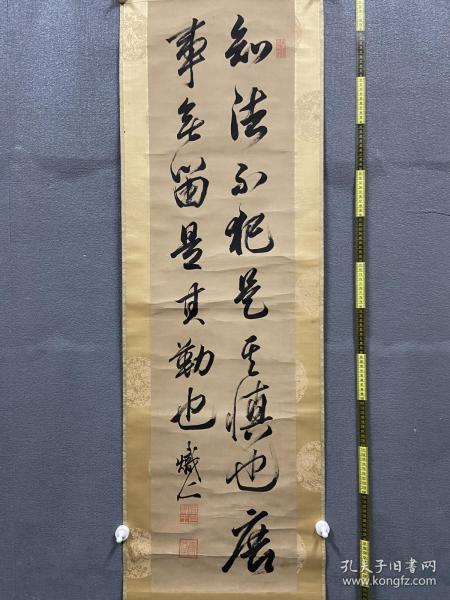 知法不犯是其慎也居
事無留是其勤也
熾仁
孔夫子旧书网
www.kongfz.com